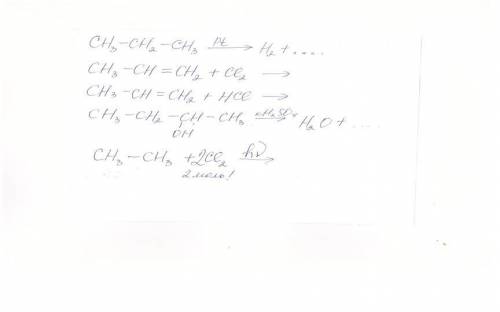 CH₃-CH₂-CH₃ —Pt→ H₂ + ....
CH₃-CH=CH₂ + Cl₂ →
CH₃-CH=CH₂ + HCl →
CH₃-CH₂-CH-CH₃ —кH₂SO₄→ H₂O + ....
OH
CH₃-CH₃ + 2Cl₂ —hν→
2 моль!